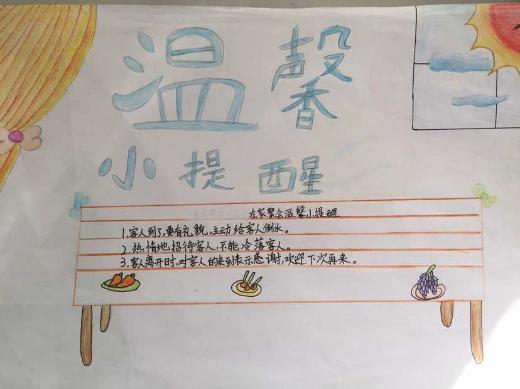 温馨
小提醒
在家聚会温馨小提醒
1.客人到了,要有礼貌,主动给客人倒水。
2.热情地招待客人,不能冷落客人。
3.客人离开时,对客人的来到表示感谢,欢迎下次再来。